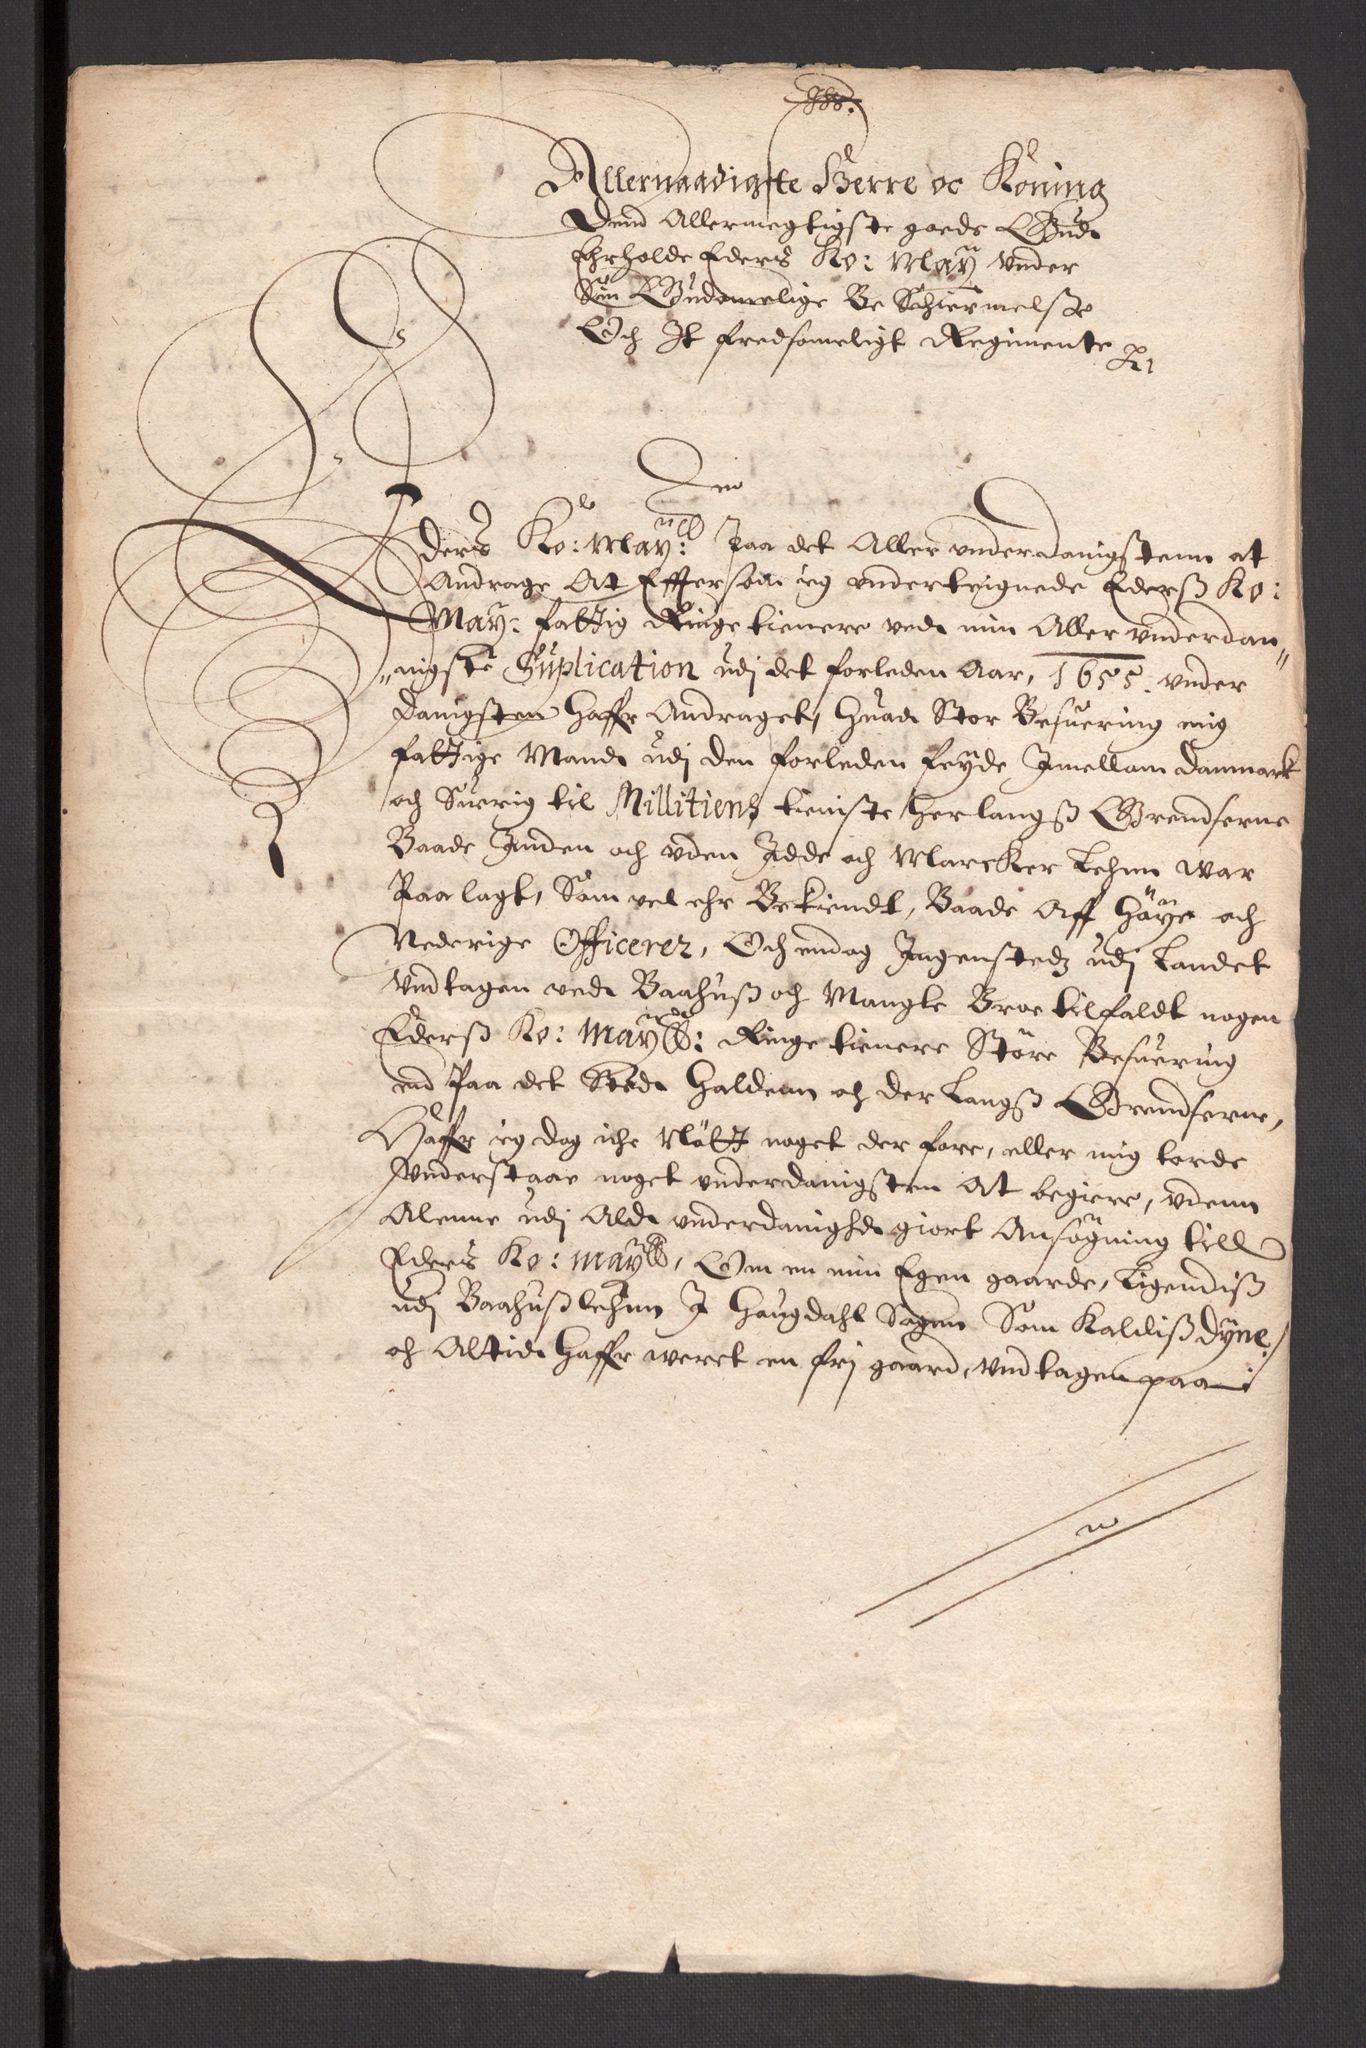 Allernaadigste Herre oc Koning
Dend Allermegtigste goede Gud
Ehrholde Eders Ko: May vnder
Sin Gudomelige Be Schiermelse
Och It fredsomeligt Regimente
Eders Ko: May: Jaa det Aller vnderdanigstenn at
Andrage At Effterson ieg vnderteignede Ederß Ko:
May: fattig Ringe tienere ved min Aller vnderdan„
„nigste Suplication udj det forleden Aar, 1655. vnder
danigsten haffr Andraget, huad Stor Besuering mig
fattige Mand udj den forleden feyde Imellom Danmark
och Suerig til Millitiens tieniste her langß Grendserne
Baade Inden och vden Idde och Marcker Lehnn war
Paa lagt, Som vel ehr Bekiendt, Baade Aff Høye och
Nederige Officerer, Och endog Ingensteds udj Landet
vndtagen ved Baahuß och Mangle Broe tilfaldt nogen
Ederß Ko: May: Ringe tienere Støre Besuering
end Paa det Sted Haldenn och der Langß Grendserne,
Haffr ieg dog iche Nøtt noget der fore, eller mig torde
vnderstaae noget vnderdanigsten At begiere, vdenn
Alenne udj Ald vnderdanighd giort Ansøgning till
Eders Ko: May, Om en min Egen gaarde, Ligendiß
udj Baahußlehnn I Haugdahl Sogen Som Kaldiß Dyne,
och Altid haffr weret en frj gaard, vndtagen paa